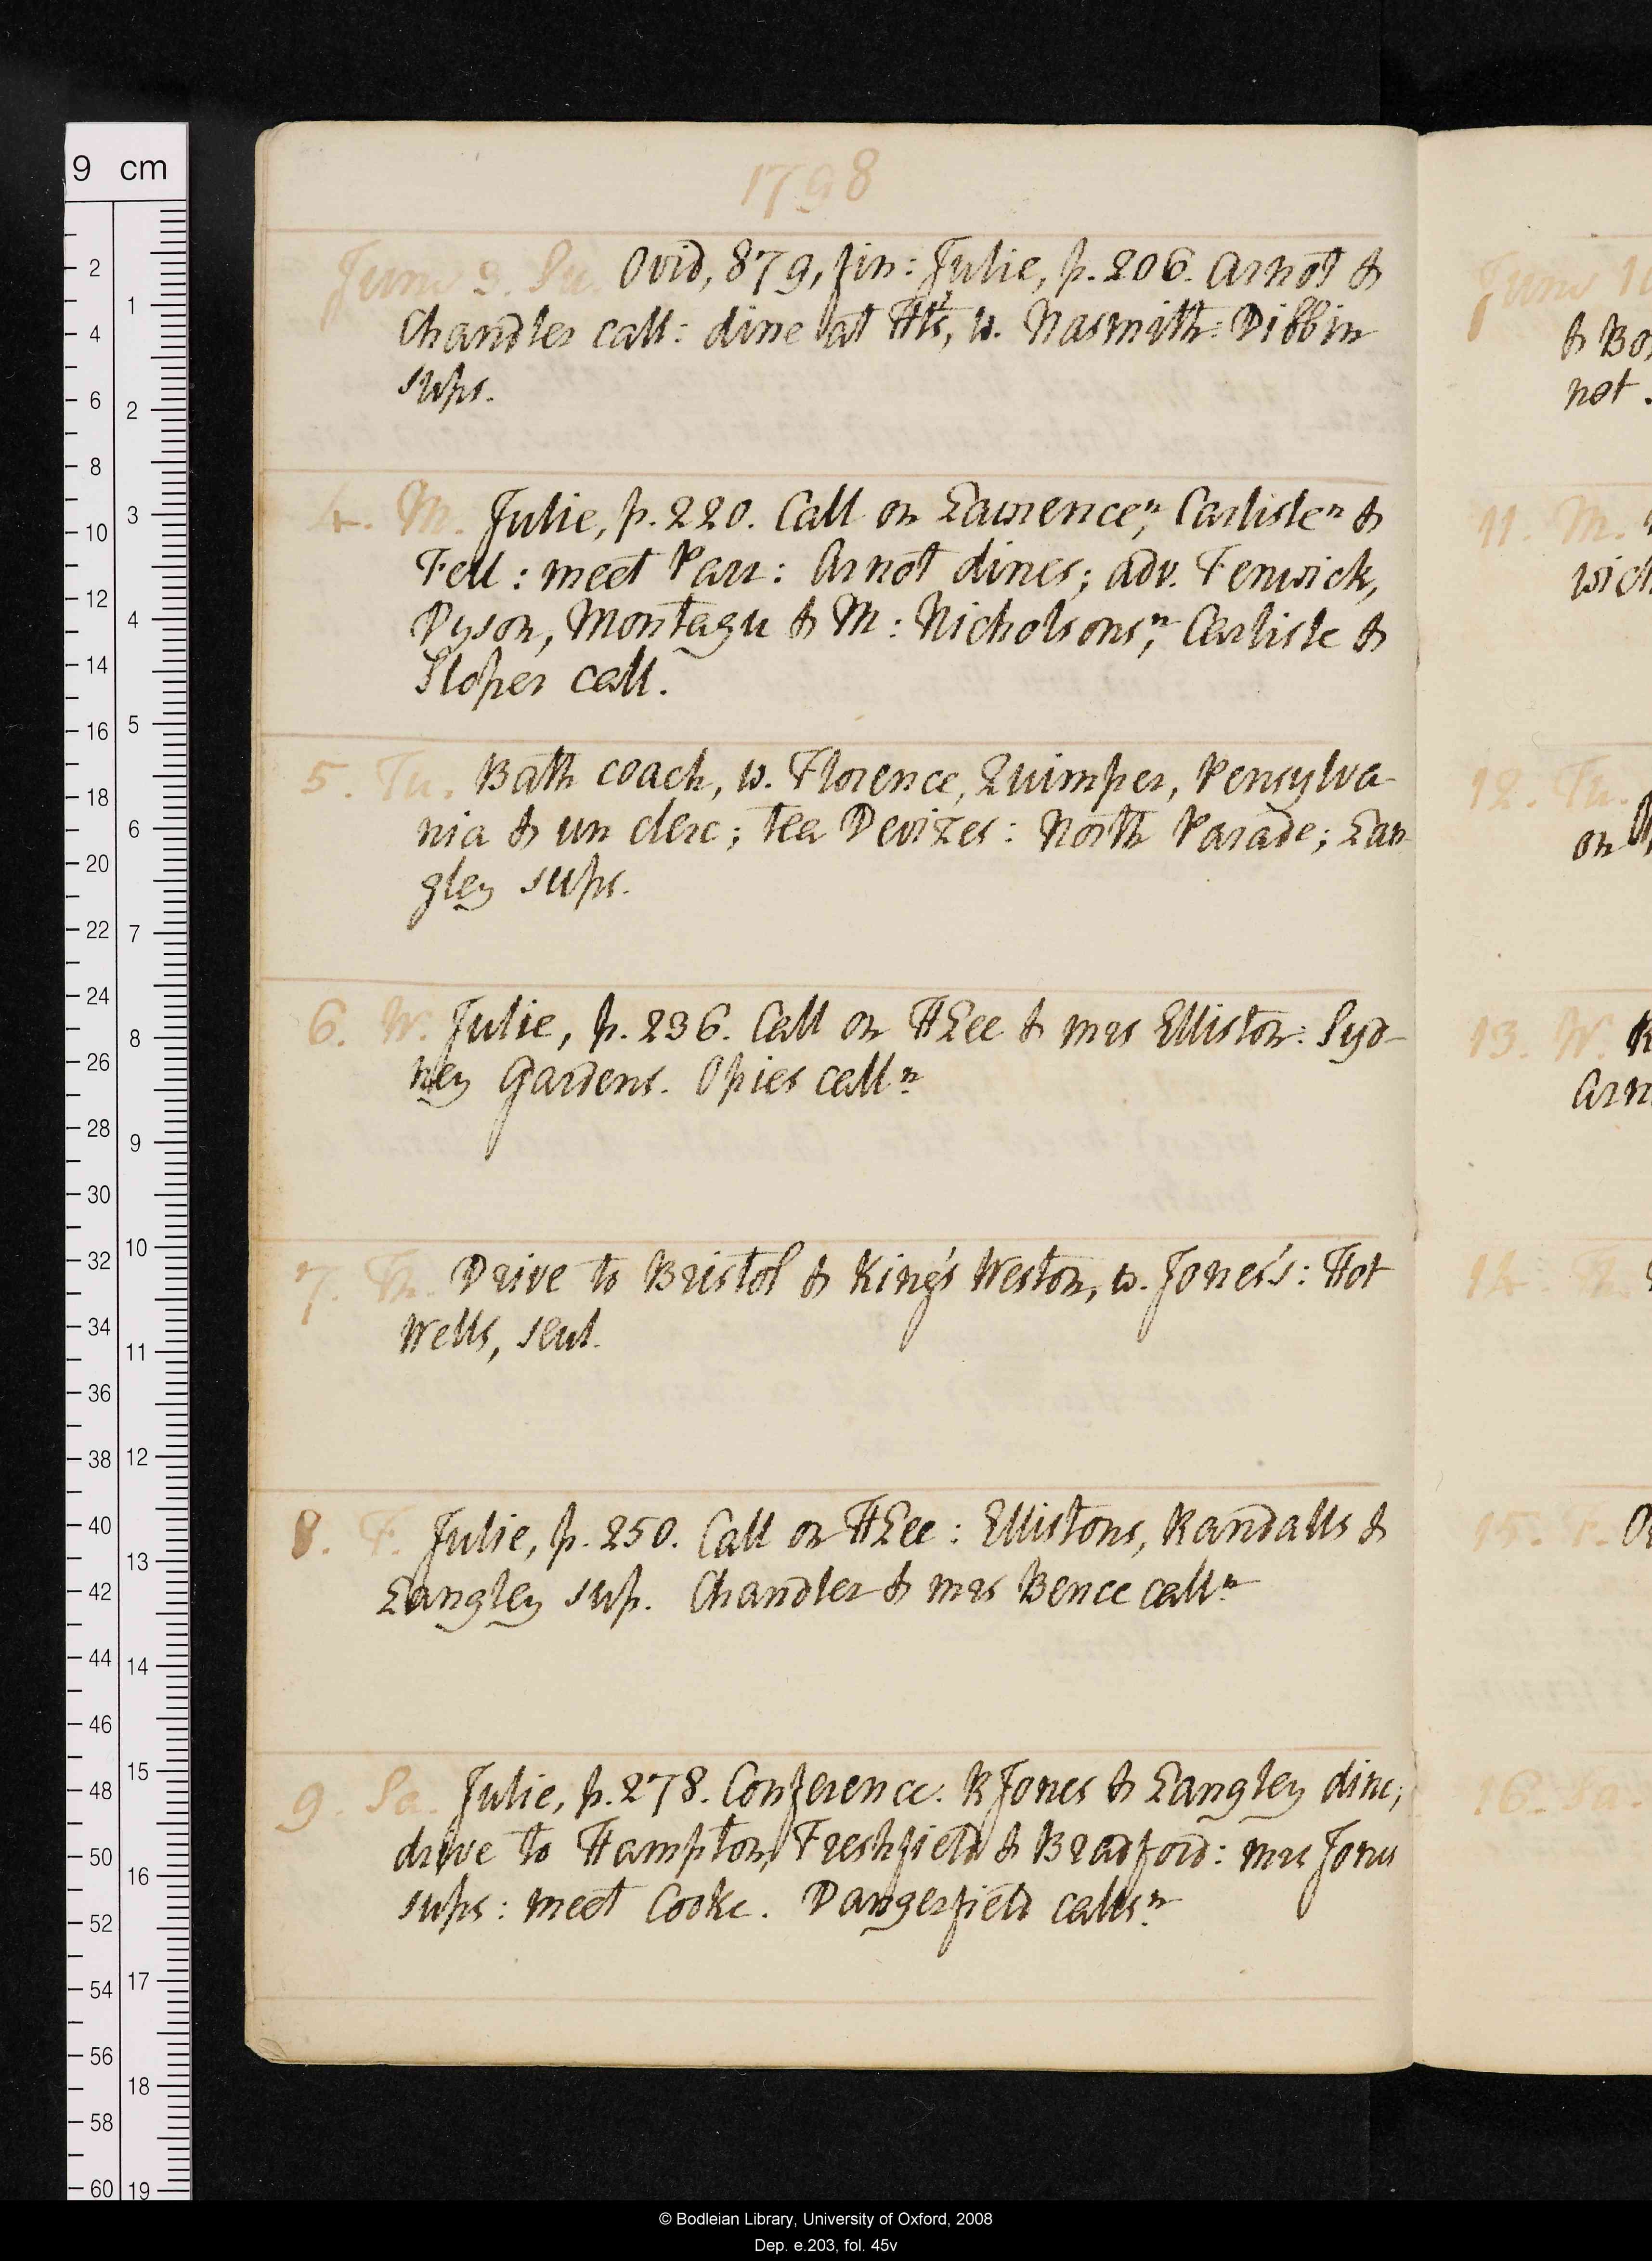 1798
June 3. Su. Ovid, 879, fin: Julie, p. 206. Arnot &
Chandler call: dine at Ht's, w. Nasmith: Dibbin
sups.
4. M. Julie, p. 220. Call on Lawrence n, Carlisle n &
Fell: meet Parr: Arnot dines; adv. Fenwick,
Dyson, Montagu & M: Nicholsons n, Carlisle &
Sloper call.
5. Tu. Bath coach, w. Florence, Quimper, Pensylva-
nia & un clerc; tea Devizes: North Parade; Lan-
gley sups.
6. W. Julie, p. 236. Call on HLee & mrs Elliston: Syd-
ney Gardens. Opies call n
7. Th. Drive to Bristol & King's Weston, w. Jones's: Hot
Wells, seul.
8. F. Julie, p. 250. Call on HLee: Ellistons, Randalls &
Langley sup. Chandler & mrs Bence call n
9. Sa. Julie, p. 278. Conference. RJones & Langley dine;
drive to Hampton, Freshfield & Bradford: mrs Jones
sups: meet Cooke. Dangerfield calls n
June 10
& Bo
not.
11. M.
wich
12. Tu.
on
13. W. R
Arn
14. Th.
15. F. O
16. Sa.
9 cm
2
4
6
8
10
12
14
16
18
20
22
24
26
28
30
32
34
36
38
40
42
44
46
48
50
52
54
56
58
60
1
2
3
4
5
6
7
8
9
10
11
12
13
14
15
16
17
18
19
© Bodleian Library, University of Oxford, 2008
Dep. e.203, fol. 45v